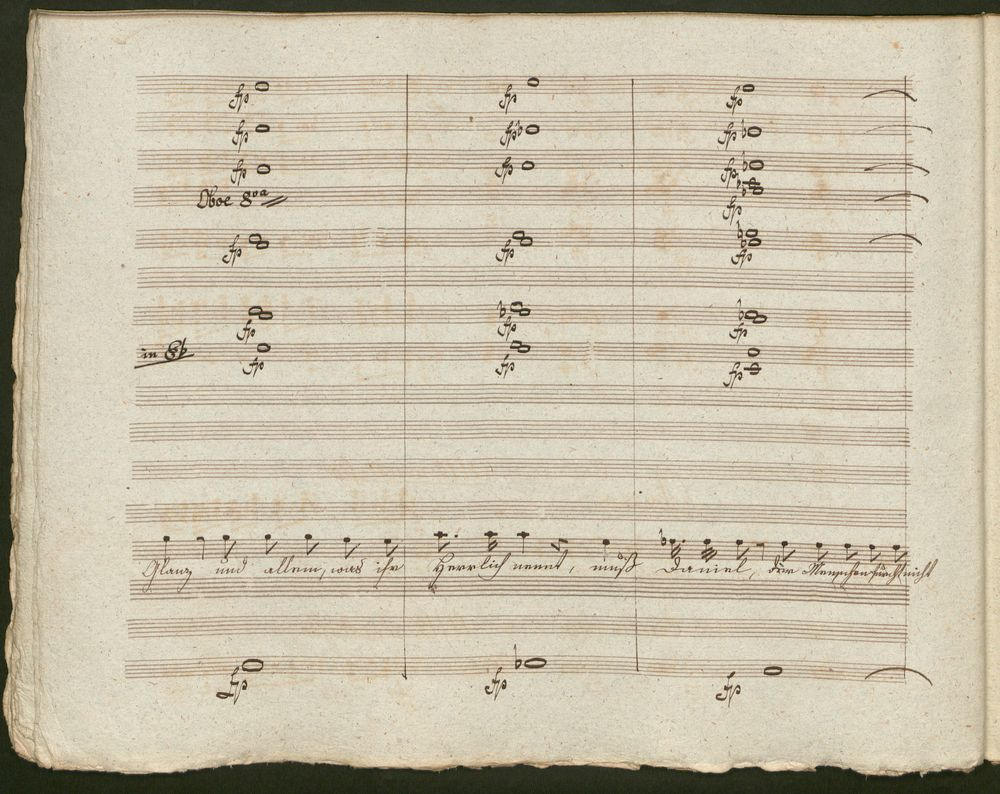 fp fp fp
fp fp fp
fp fp fp
Oboe 8va fp
fp fp fp
fp fp fp
in Eb fp fp fp
Glanz und allem, was ihr Herrlich nennt, muß Daniel, der Menschenfurcht nicht
fp fp fp